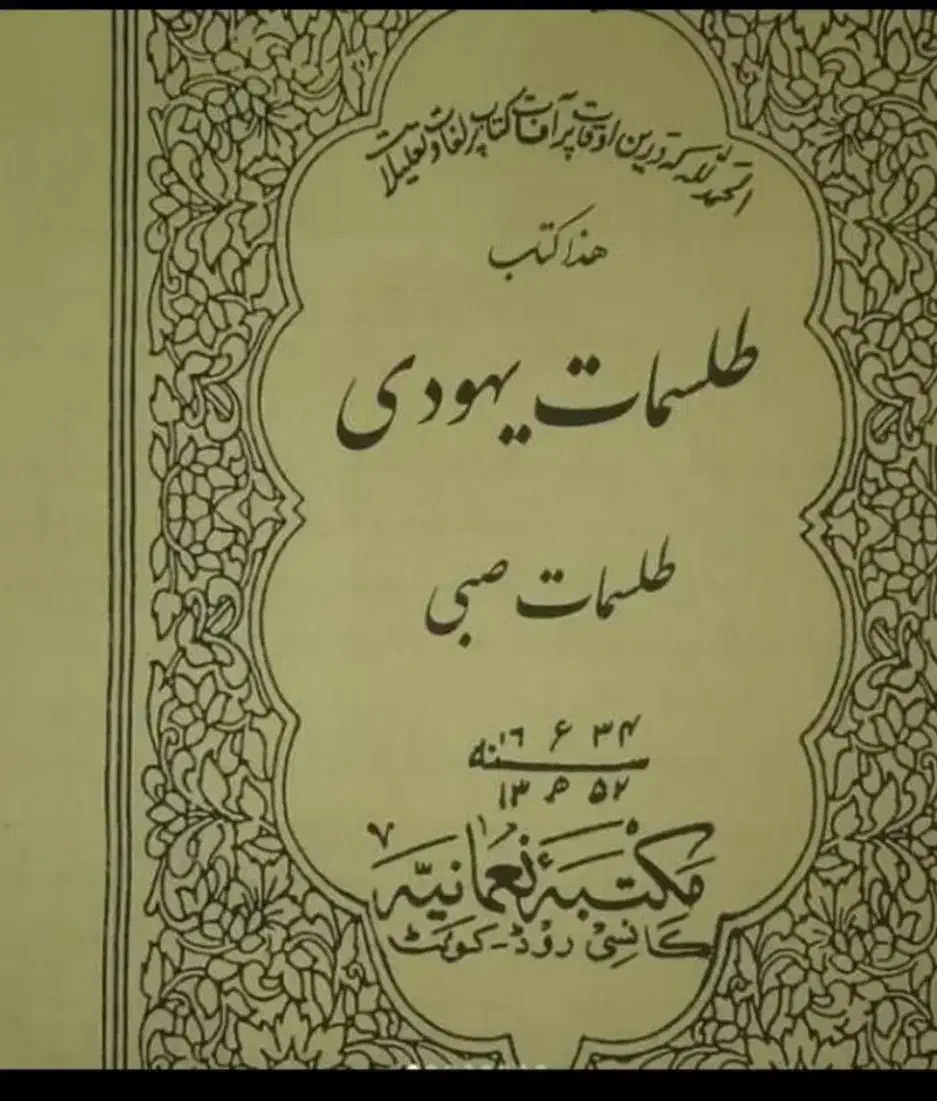 الحمد لله که درین اوقات پر آفات کتاب پر لغات و تعلیلات
هذا کتب
طلسمات یهودی
طلسمات صبی
۳۴ ۶ ۱۶
سنه
۵۲ ھ ۱۳
مکتبۂ نعمانیہ
کانسی روڈ - کوئٹہ